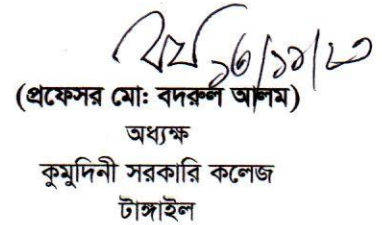 (প্রফেসর মোঃ বদরুল আলম)
অধ্যক্ষ
কুমুদিনী সরকারি কলেজ
টাঙ্গাইল